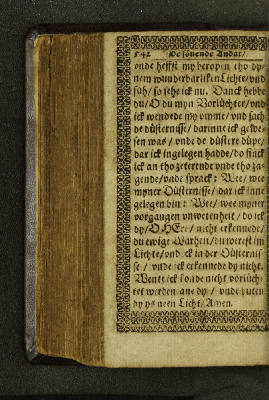 542 De sövende Andac/
vnde heffst my beropen tho dy=
nem wunderbarliken Lichte/ vnd
süh/ so sehe ick nu. Danck hebbe
du/ O du myn Vorlüchter/ vnd
ick wendede my vmme/ vnd sach
de düsternisse/ darinne ick gewe=
sen was/ vnde de düstere düpe/
dar ick ingelegen hadde/ do finck
ick an tho zeterende vnde tho za=
gende/ vnde sprack: Wee/ wee
myner Düsternisse/ dar ick inne
gelegen bin: Wee/ wee myner
vorgangen vnwetenheit/ do ick
dy/ O HEre/ nicht erkennede/
du ewige Warheit/ du werest im
Lichte/ vnd ick in der Düsternis=
se/ vnde ick erkennede dy nicht.
Wente ick konde nicht vorlüch=
tet werden ane dy/ vnde buten
dy ys neen Licht/ Amen.